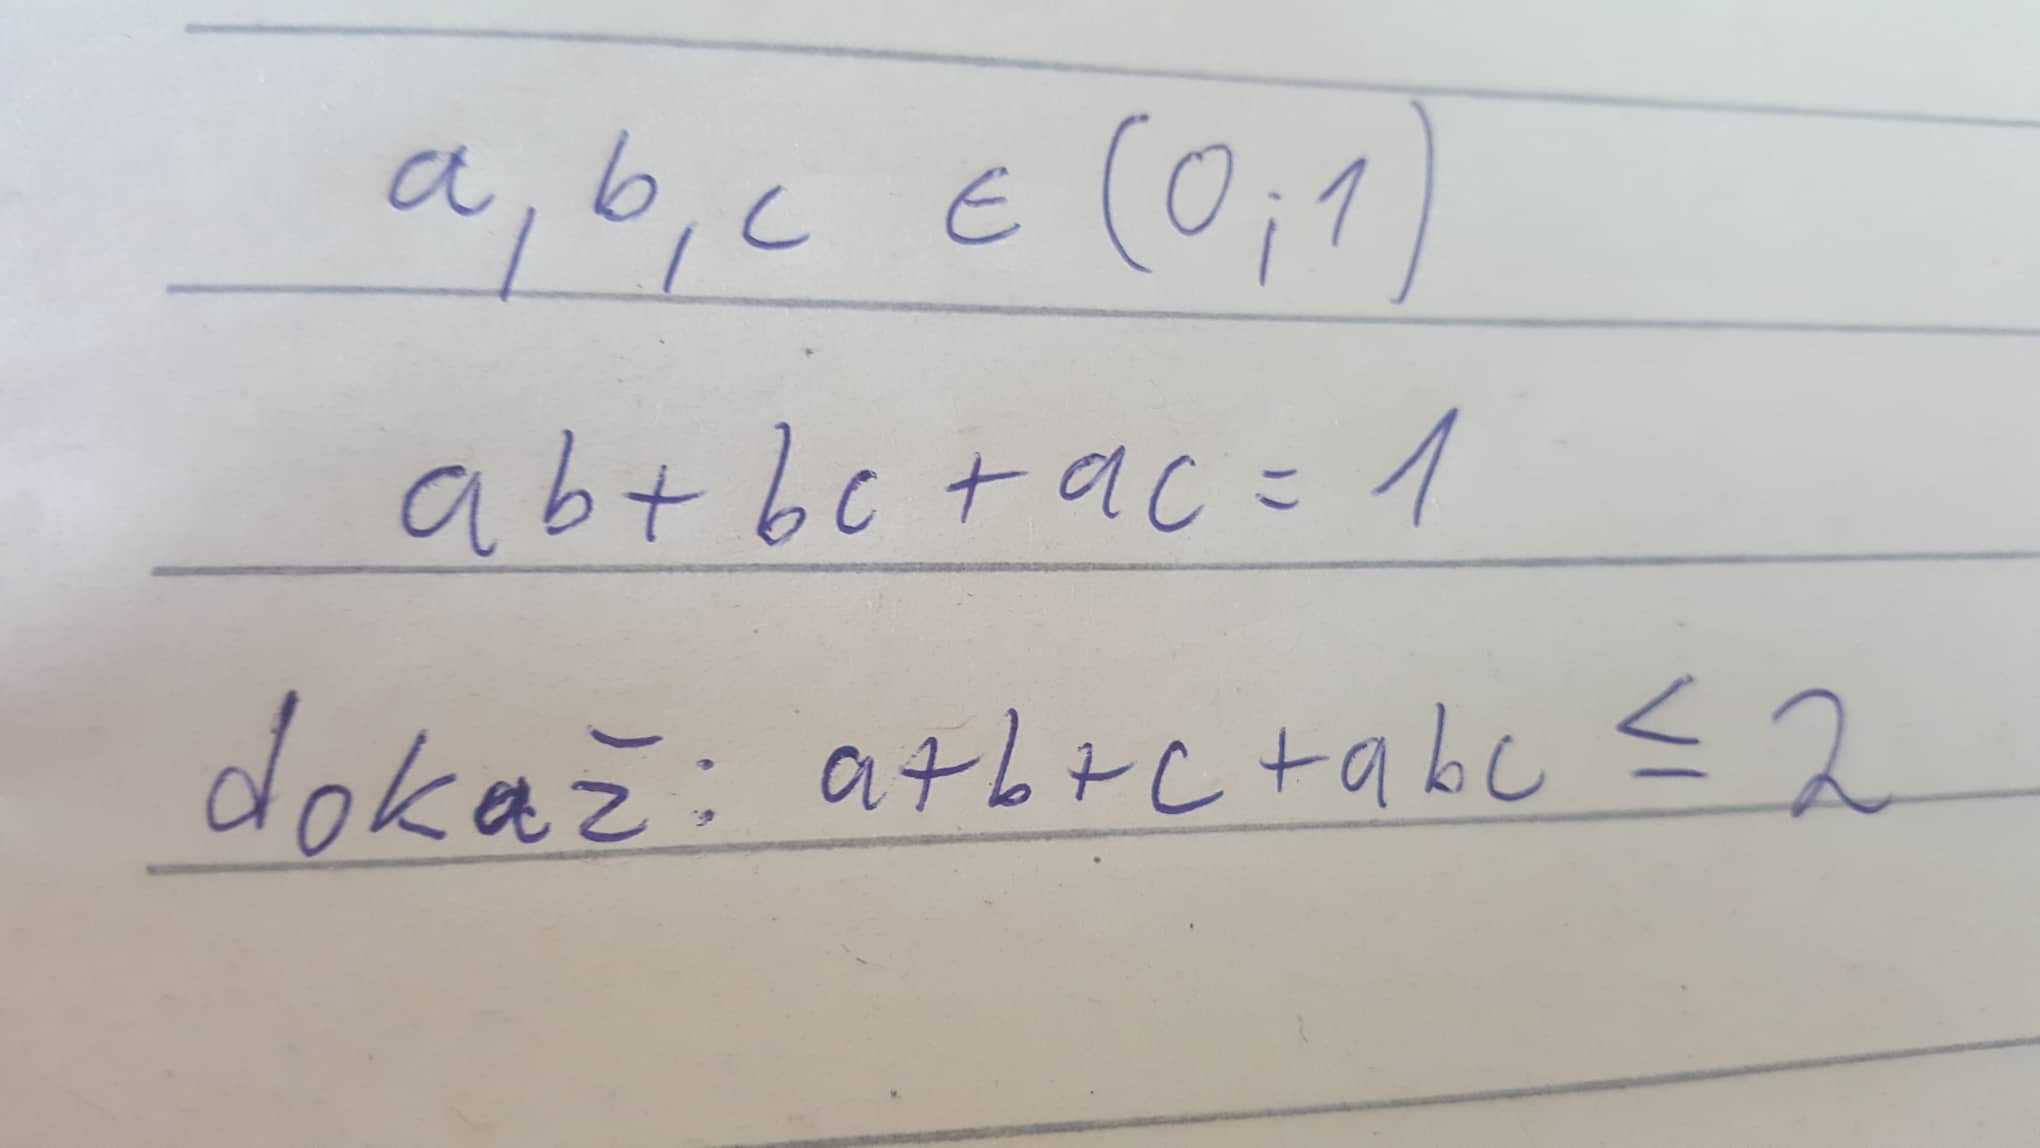 a, b, c ∈ (0;1)
ab + bc + ac = 1
dokaž: a+b+c+abc ≤ 2